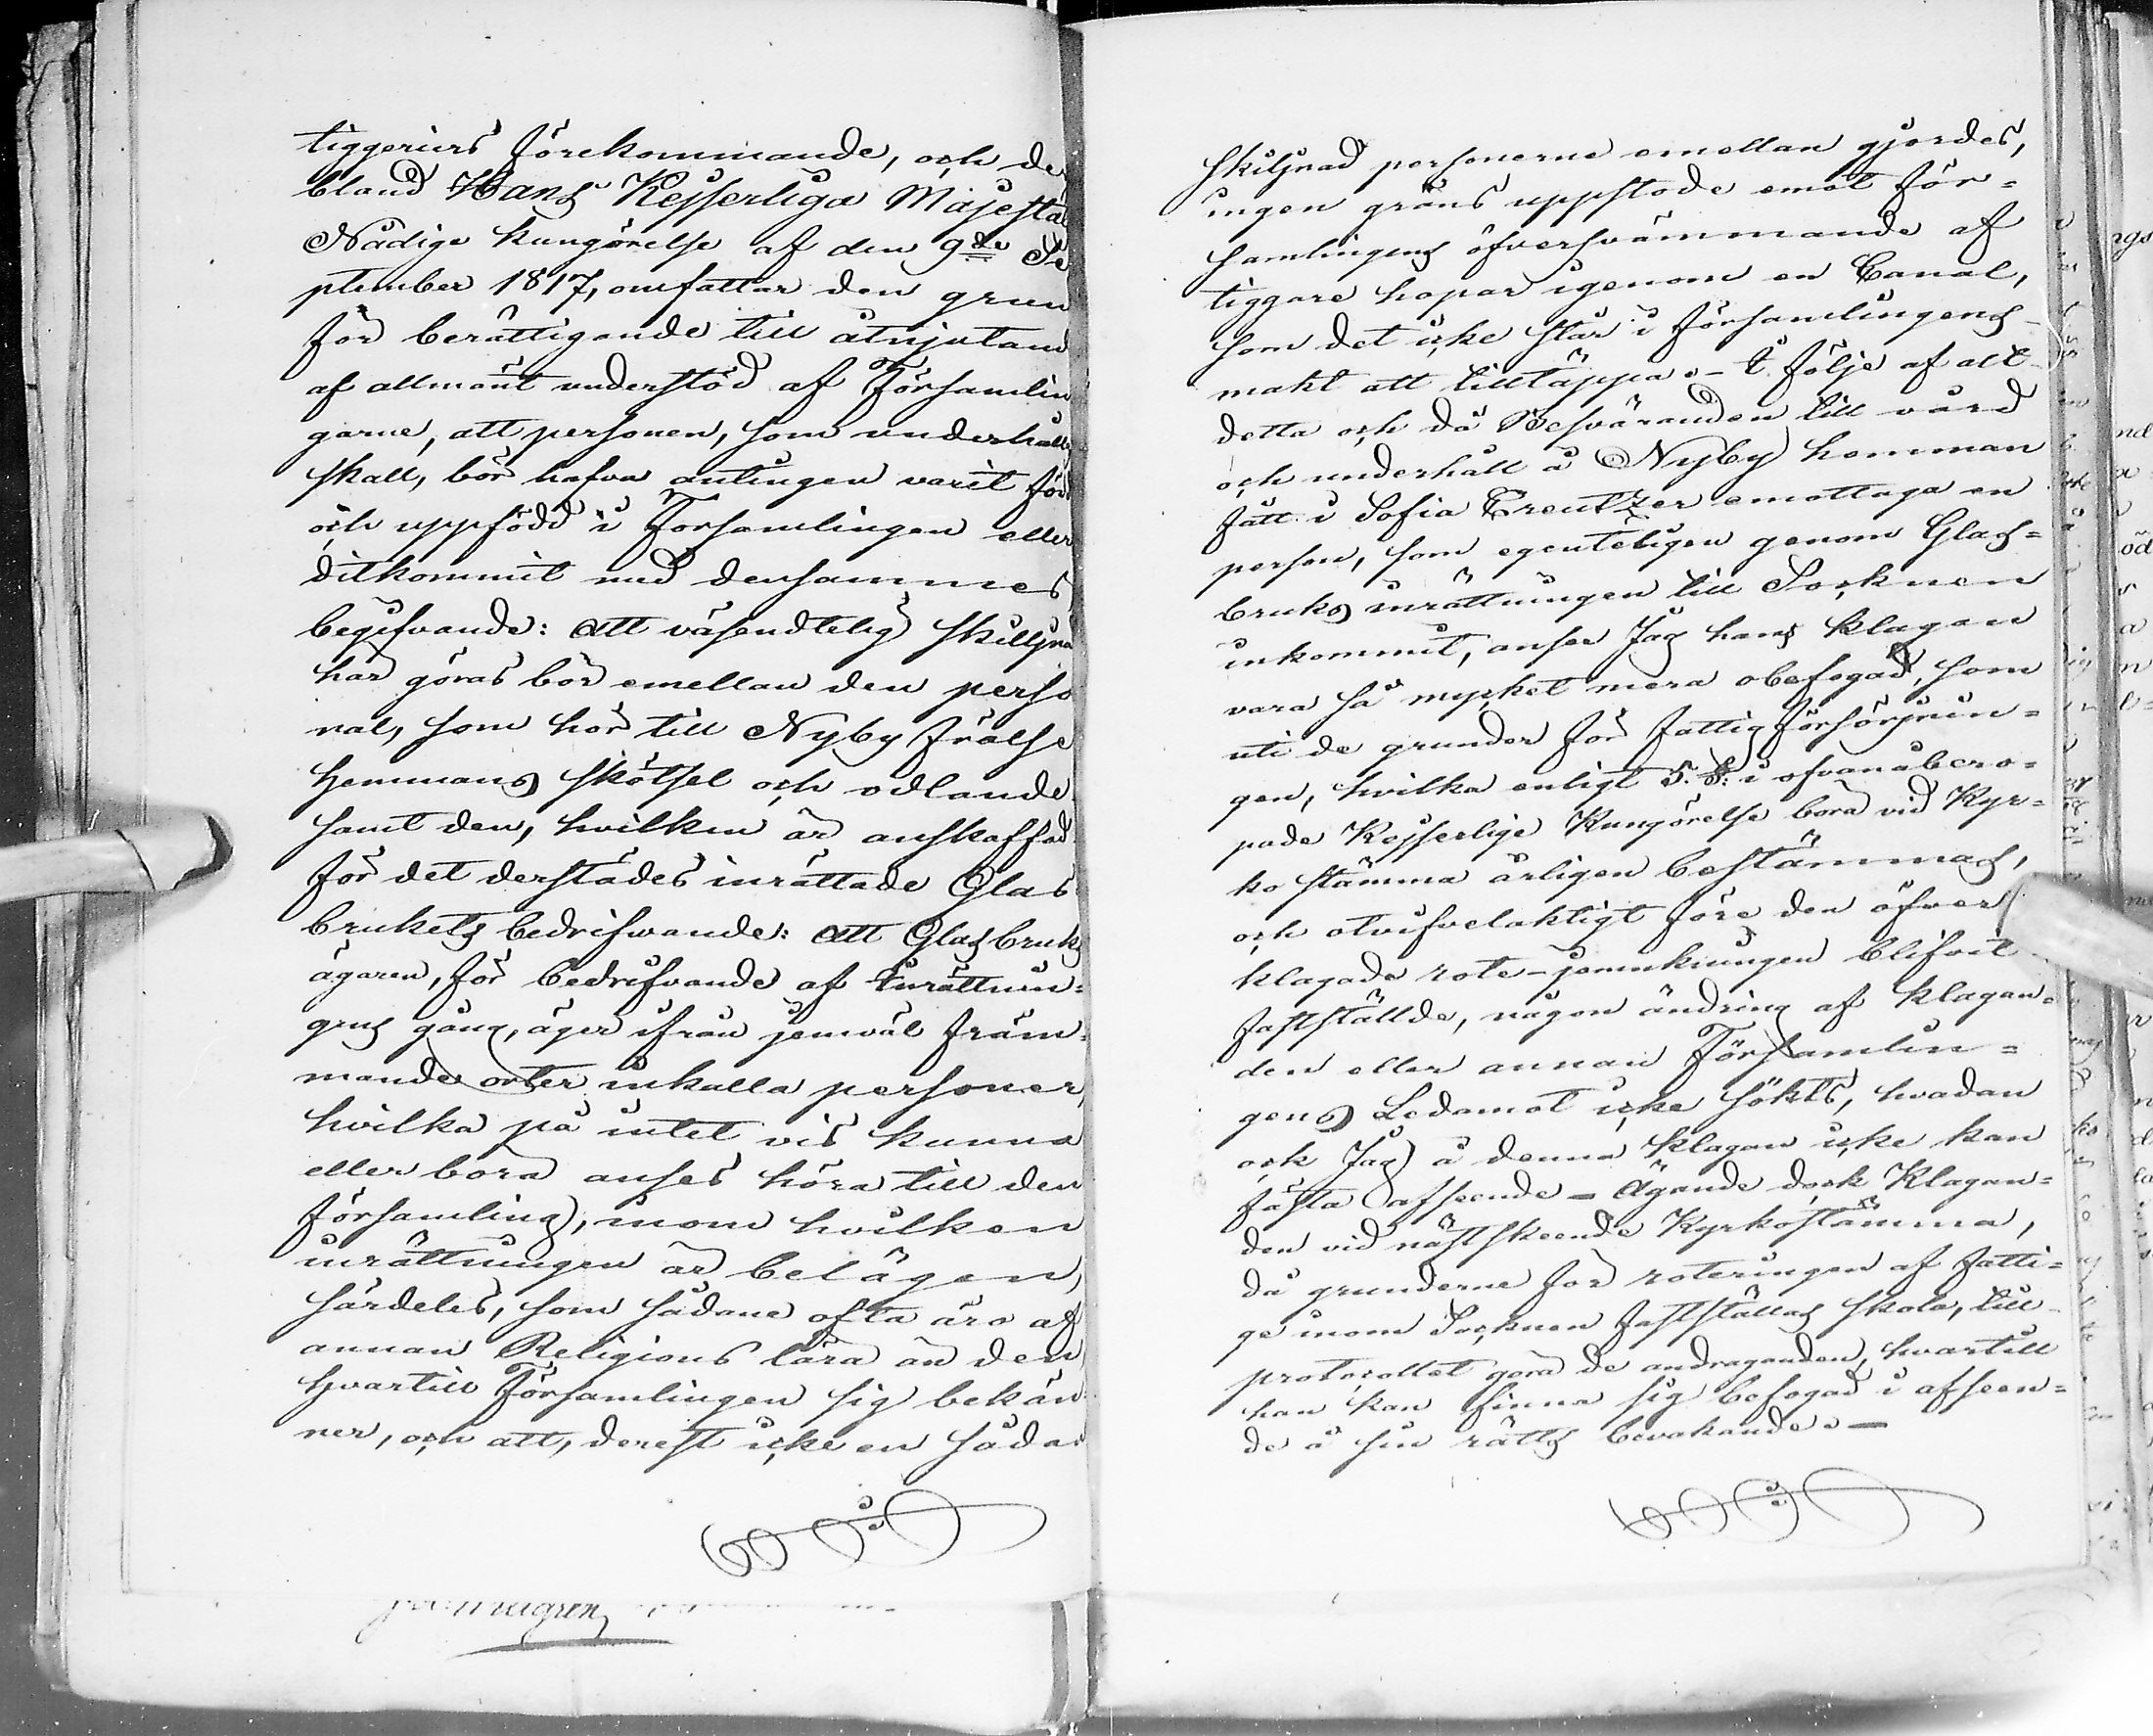 tiggeriers förekommande, och de
bland Hans Kejserliga Majestä
Nådige kungörelse af den 9de Se
ptember 1817, omfattar den grun
för berättigande till åtnjutand
af allmänt understöd af Församlin
garne, att personen, som underhåll
skall, bör hafva antingen varit föd
och uppfödd i Församlingen eller
ditkommit med densammes
begifvande: att väsendtelig skiljna
här göras bör emellan den perso
nal, som hör till Nyby frälse
hemmans skötsel och odlande
samt den, hvilken är anskaffad
för det derstädes inrättade Glas
brukets bedrifwande: att Glasbruks
ägaren, för bedrifvande af Inrättnin-
gens gång, äger ifrån jemväl främ-
mande orter inkalla personer,
hvilka på intet vis kunna
eller böra anses höra till den
församling, inom hvilken
inrättningen är belägen,
särdeles, som sådane ofta äro af
annan Religions lära än den
hvartill Församlingen sig bekän
ner, och att, derest icke en såda
skiljnad personerne emellan gjordes,
ingen gräns uppstode emot För-
samlingens öfversvämmande af
tiggare hopar igenom en Canal,
som det icke står i församlingens
makt att tilltäppa. - I följe af allt
detta och då Besväranden till vård
och underhåll å Nyby hemman
fått i Sofia Creutzer emottaga en
person, som egenteligen genom Glas-
bruks inrättningen till Socknen
inkommit, anser Jag hans klagan
vara så mycket mera obefogad, som
uti de grunder för fattigförsörjnin-
gen, hvilka enligt 5. §: i ofvanåbero-
pade Kejserlige Kungörelse böra vid Kyr-
ko stämma årligen bestämmas,
och otvifvelaktigt före den öfver
klagade rote-jemnkningen blifvit
fastställde, någon ändring af klagan-
den eller annan Församlin-
gens Ledamot icke sökts, hvadan
ock Jag å denna klagan icke kan
fästa afseende - Ägande dock Klagan-
den vid nästskeende Kyrkostämma,
då grunderne för roteringen af fatti-
ge inom Socknen fastställas skola, till
protocollet göra de andraganden, hvartill
han kan finna sig befogad i afseen-
de å sin rätts bevakande. -